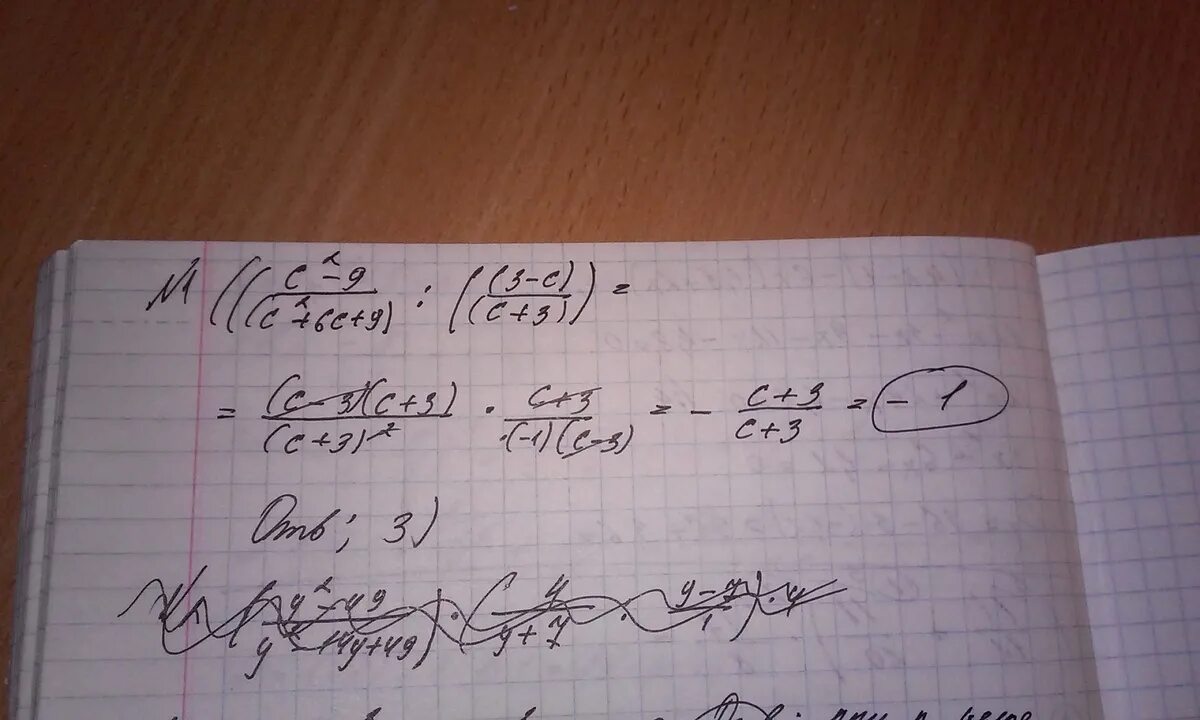 №1 (((c²-9)/(c²+6c+9) : ((3-c)/(c+3)) =
= (c-3)(c+3)/(c+3)² · c+3/·(-1)(c-3) = - c+3/c+3 = -1
Отв; 3)
(y²-49/y²-14y+49) · (y/y+7 · y-7/1) · y